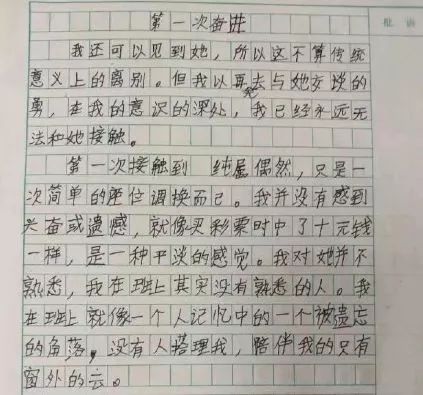 第一次奋进
我还可以见到她，所以这不算传统
意义上的离别。但我以再死去与她交谈的
勇，在我的意识的深处，我已经永远无
法和她接触。
第一次接触到 纯属偶然，只是一
次简单的座位调换而己。我并没有感到
兴奋或遗憾，就像买彩票时中了十元钱
一样，是一种平淡的感觉。我对她并不
熟悉，我在班上其实没有熟悉的人。我
在班上就像一个人记忆中的一个被遗忘
的角落，没有人搭理我，陪伴我的只有
窗外的云。
批语